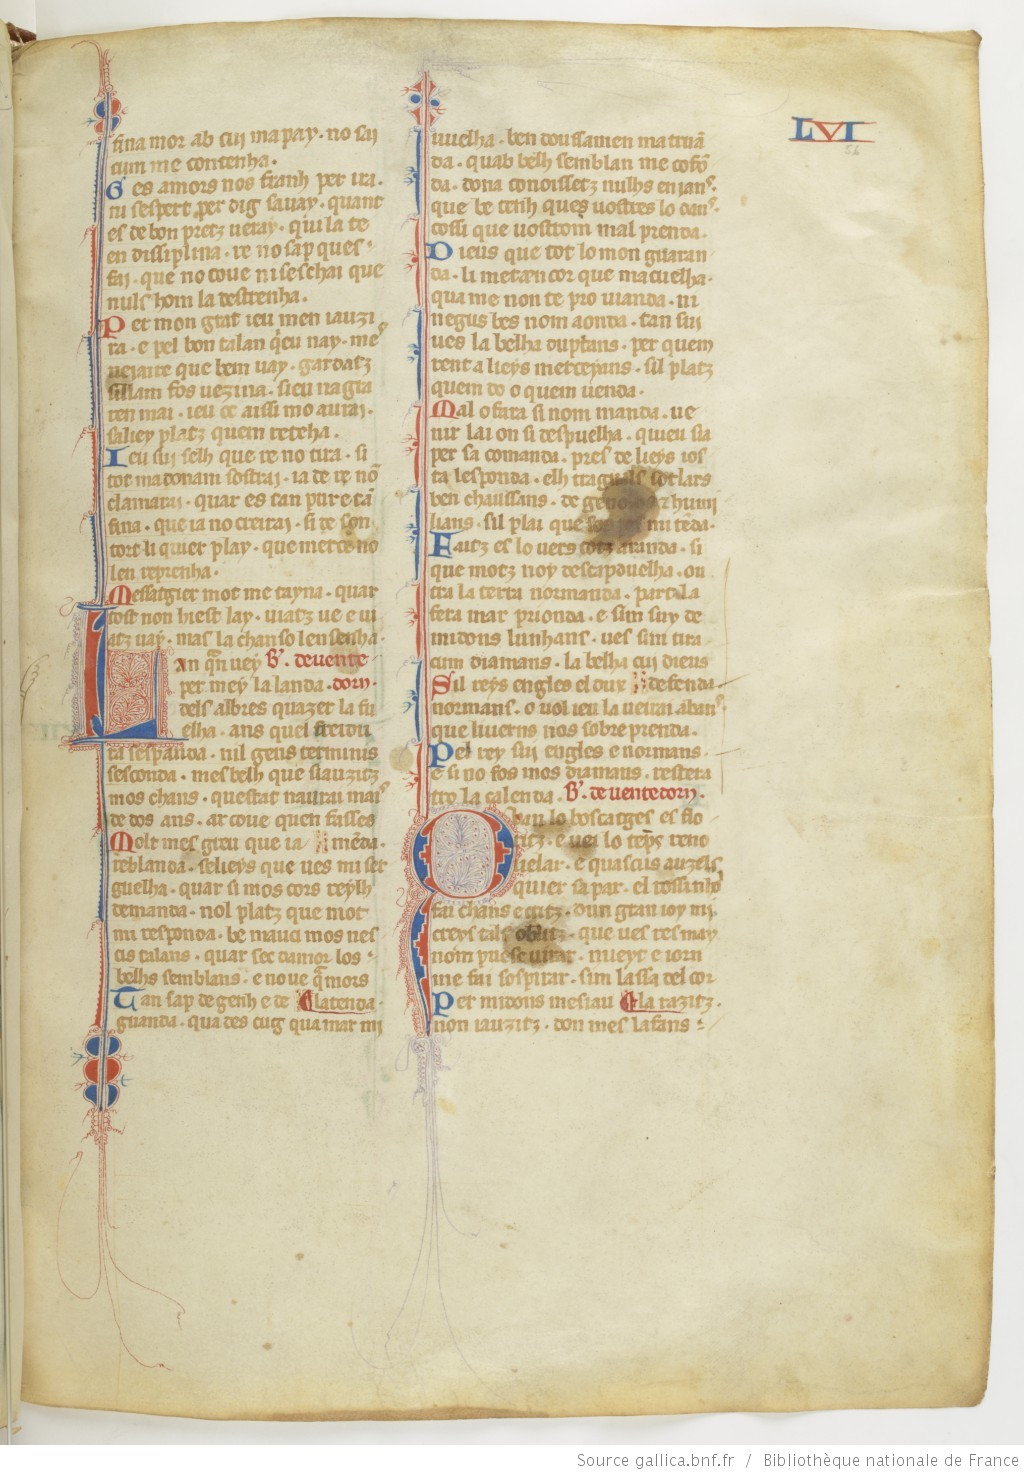 LVI
56
fina mor ab cui ma pay · no sai
cum me contenha ·
Ges amors nos franh per ira ·
ni sespert per dig savay · quant
es de bon pretz veray · qui la te
en dissiplina · re no sap ques
fai · que no cove ni seschai que
nuls hom la destrenha ·
Per mon grat ieu men iauzi
ra · e pel bon talan q̄eu nay · me
veiaire que bem vay · gardatz
sillam fos vezina · sieu nagra
ren mai · ieu ce aissi mo aurai ·
siliey platz quem reteha ·
Ieu sui selh que re no tira · si
tot madonam sostrai · ia de re nō
clamarai · quar es tan pur e tā
fina · que ia no creirai · si te son
tort li quier play · que merce no
len repienha ·
Messatgier mot me tayna · quar
tost non hiest lay · viatz ve e vi
atz vay · mas la chanso len senha ·
Lan qn̄ vey B'. de vente
per mey la landa · dorn ·
dels albres quazer la fu
elha · ans quel freidu
ra sespanda · nil gens terminis
sesconda · mes belh que si auzitz
mos chans · questat naurai mais
de dos ans · ar cove quen fasses
Molt mes grieu que ia mēda ·
reblanda · selieys que ves mi ser
guelha · quar si mos cors reylh
demanda · nol platz que mot
mi responda · be mauci mos nes
cis talans · quar sec damor los
belhs semblans · e no ve q̄mors
Tan sap de genh e de latenda ·
guanda · qua des cug qua mar mi
vuelha · ben doussamen ma truā
da · quab belh semblan me cofō
da · dona conoissetz nulhs enjans ·
que be tenh ques vostres lo dans ·
cossi que vostrom mal prenda ·
Dieus que tot lo mon guaran
da · li meta en cor que ma cuelha ·
qua me non te pro vianda · ni
negus bes nom aonda · tan sui
ves la belha duptans · per quem
rent a lieys merceyans · sil platz
quem do o quem venda ·
Mal o fara si nom manda · ve
nir lai on si despuelha · quieu sia
per sa comanda · pres de lieys ios
ta lesponda · elh tragua ls sotlars
ben chaussans · de genolhs & humi
lians · sil plai que sos pes mi tēda ·
Faitz es lo vers totz a randa · si
que motz noy descapduelha · ou
tra la terra normanda · part la
fera mar prionda · e sim suy de
midons lunhans · ves sim tira
cum diamans · la belha cui dieus
Sil reys engles el dux defenda ·
normans · o vol ieu la veirai abans ·
que liverns nos sobreprenda ·
Pel rey sui engles e normans ·
e si no fos mos diamans · restera
tro la calenda · B'. de ventedorn ·
Quan lo boscatges es flo
ritz · e vei lo tēps reno
velar · e quascus auzels
quier sa par · el rossinhol
fai chans e critz · dun gran ioy mi
creys tals oblitz · que ves res may
nom puesc virar · nueyt e iorn
me fai sospirar · sim lassa del cor
Per midons mesiau la razitz ·
non iauzitz · don mes lafans :
Source gallica.bnf.fr / Bibliothèque nationale de France